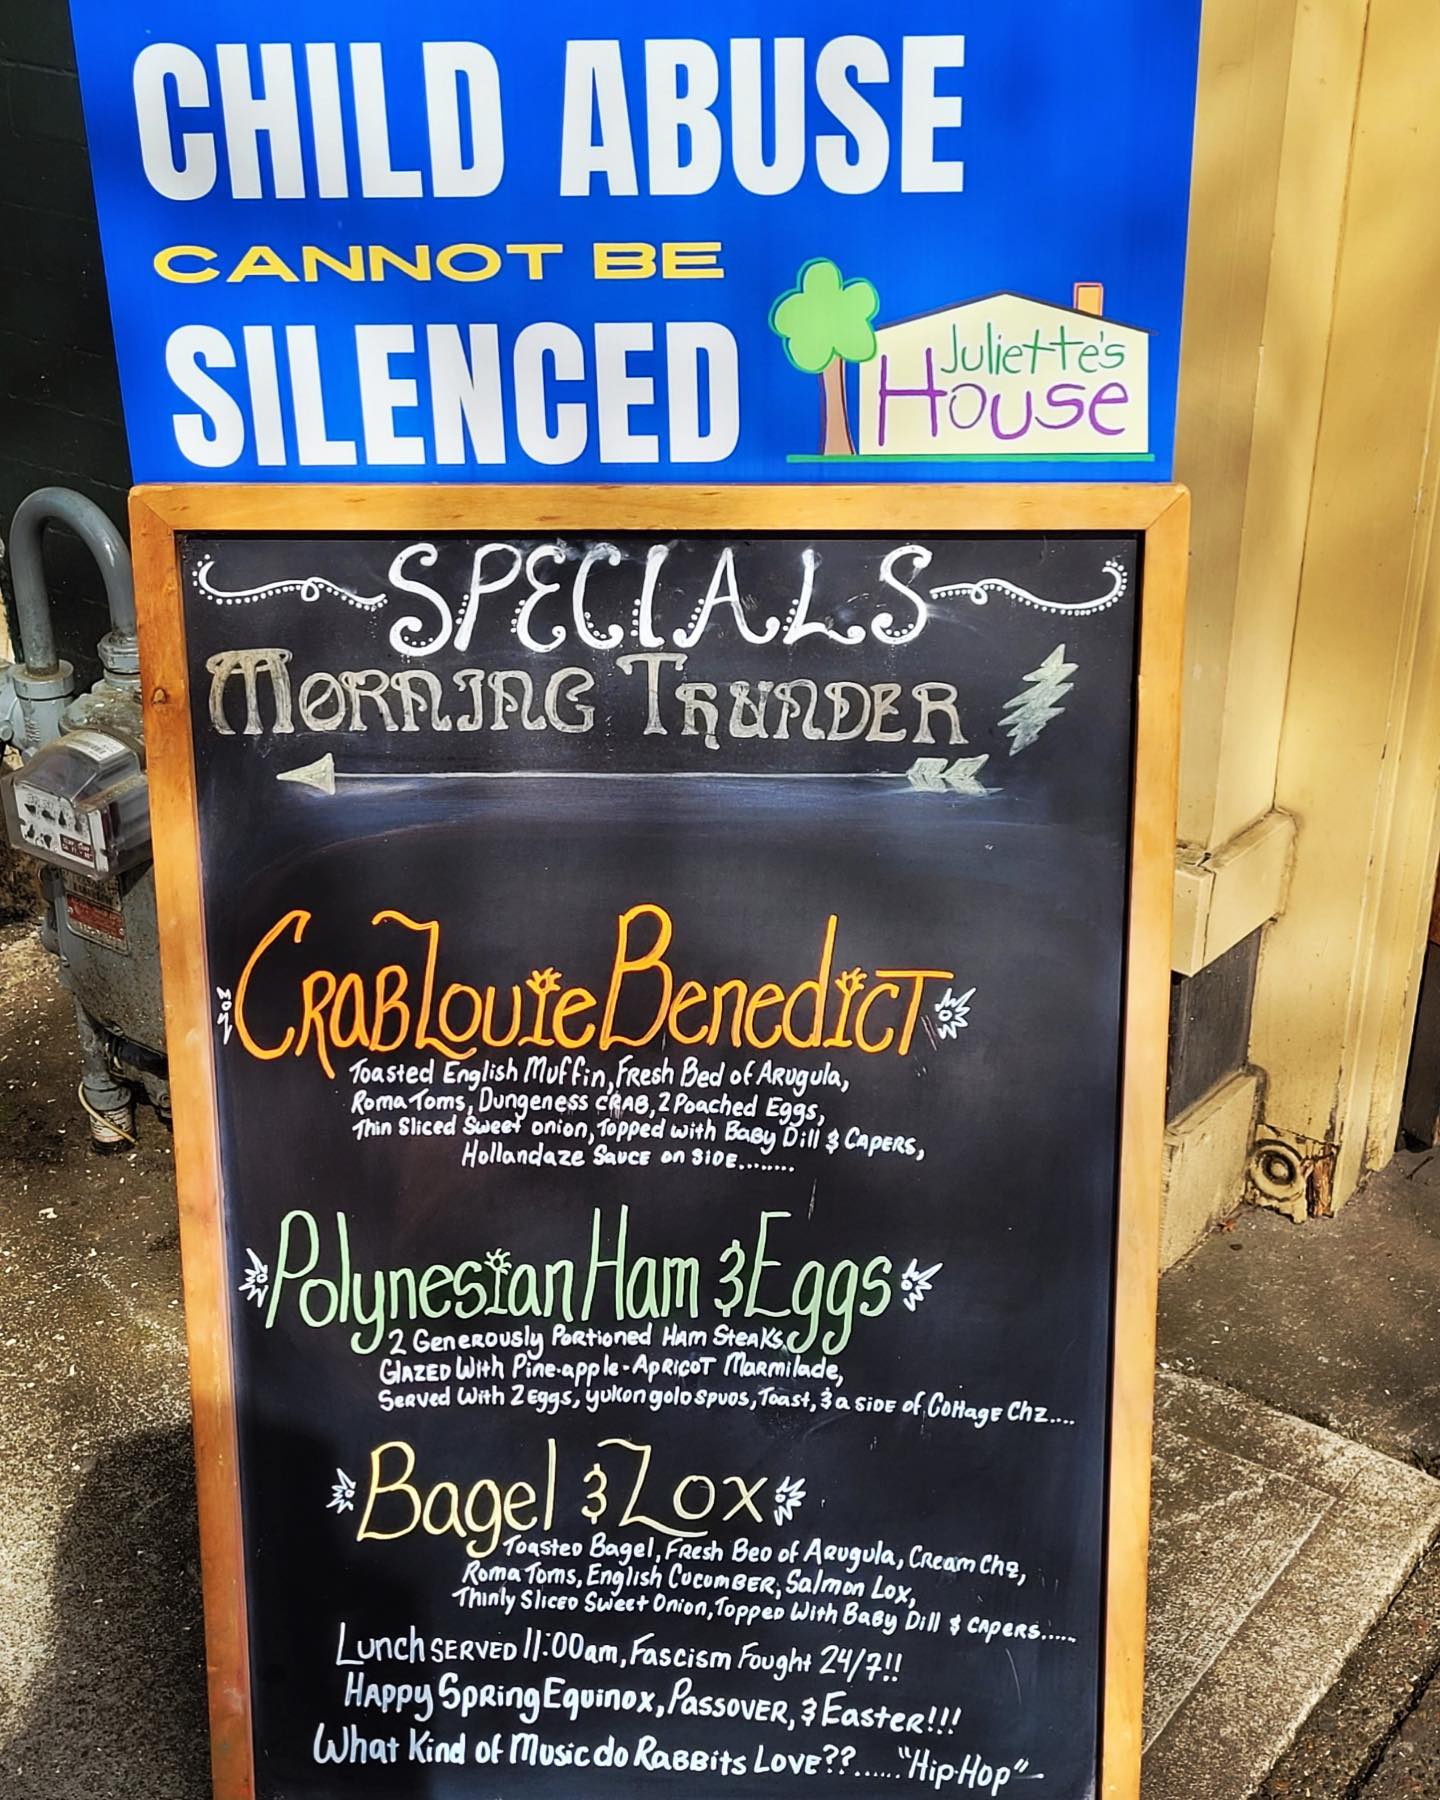 CHILD ABUSE
CANNOT BE
SILENCED
Juliette's
House
SPECIALS
MORNING THUNDER
CRAB Louie Benedict
Toasted English Muffin, Fresh Bed of Arugula,
Roma Toms, Dungeness CRAB, 2 Poached Eggs,
Thin Sliced Sweet onion, Topped with Baby Dill & Capers,
Hollandaze Sauce on SIDE........
Polynesian Ham & Eggs
2 Generously Portioned Ham Steaks,
Glazed With Pine-apple-Apricot Marmilade,
Served With 2 Eggs, yukon gold spuds, Toast, & a side of Cottage Chz....
Bagel & Lox
Toasted Bagel, Fresh Bed of Arugula, Cream Chz,
Roma Toms, English Cucumber, Salmon Lox,
Thinly Sliced Sweet Onion, Topped With Baby Dill & capers.....
Lunch SERVED 11:00am, Fascism Fought 24/7!!
Happy Spring Equinox, Passover, & Easter!!!
What Kind of Music do Rabbits Love??...... "Hip-Hop"